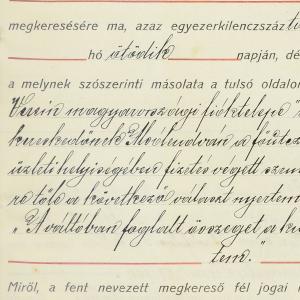 megkeresésére ma, azaz egyezerkilenczszáz
hó ötödik napján, dé
a melynek szószerinti másolata a tulsó oldalo
Verein magyarországi fióktelepe
kereskedőnek Moólnaván a főutcz
üzleti helyiségében fizetés végett szem
re tőle a következő választ nyertem
„A váltóban foglalt összeget a ki
tem."
Miről, a fent nevezett megkereső fél jogai